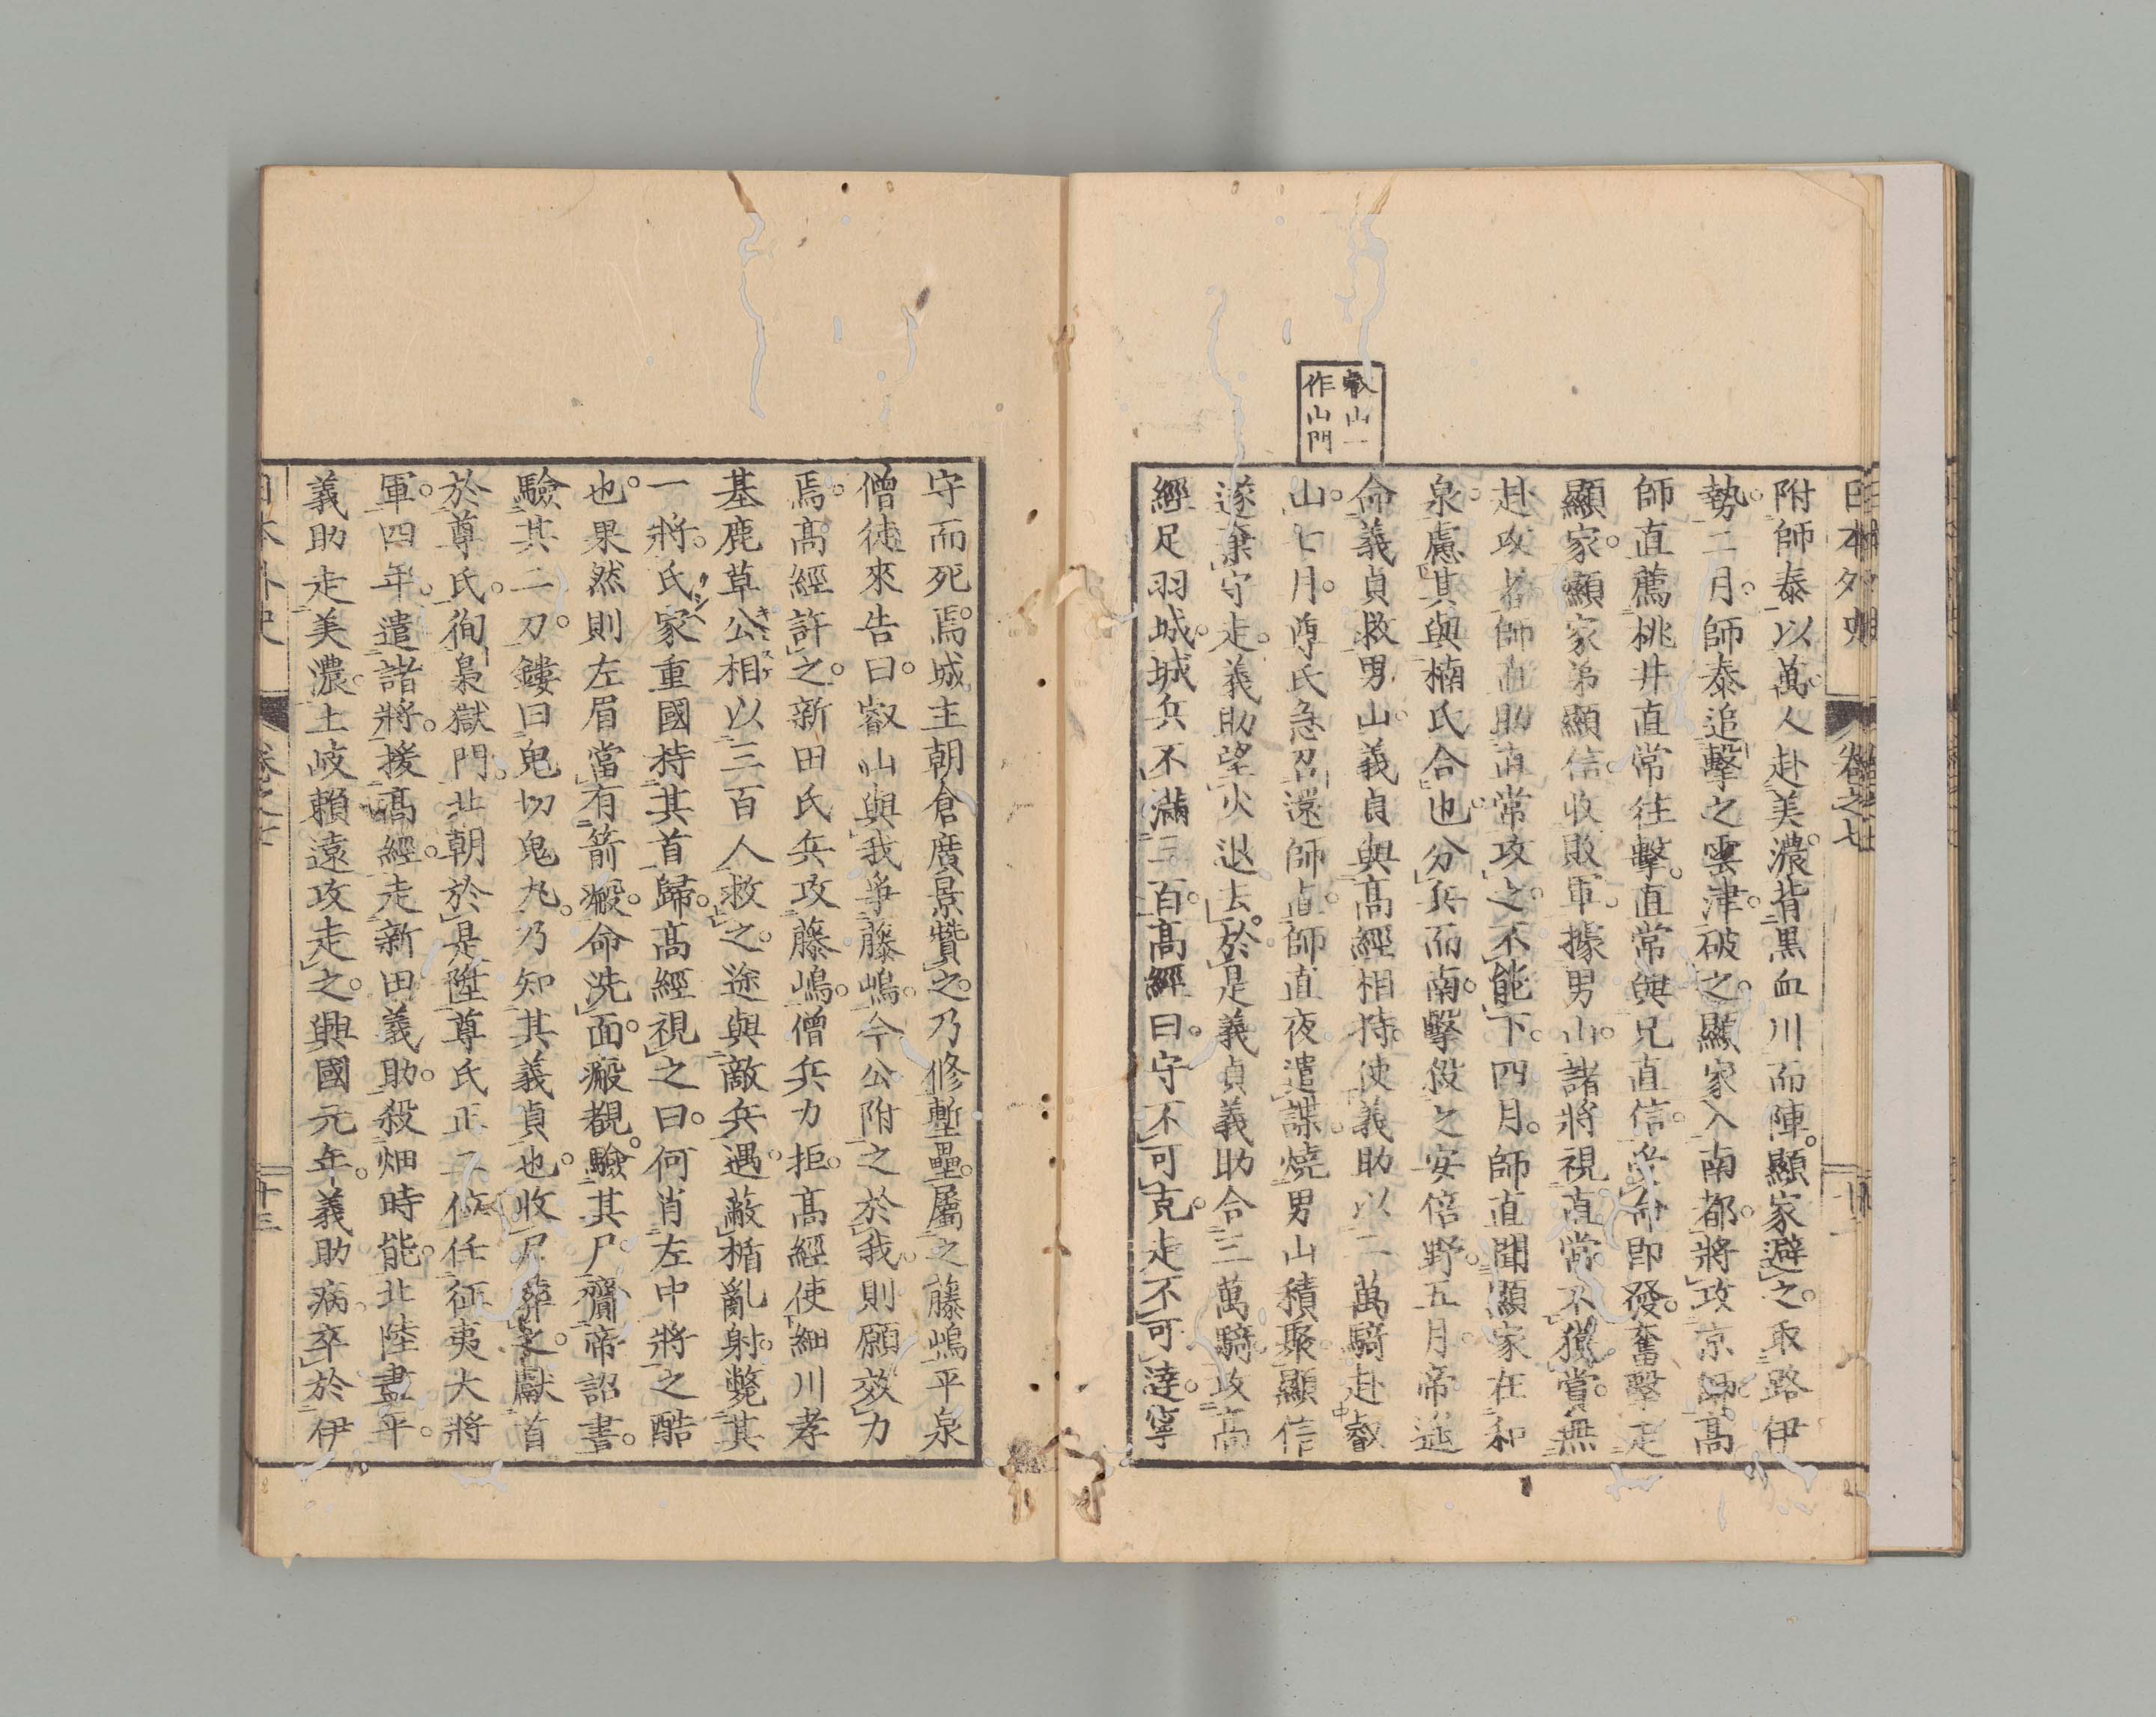 日本外史
卷之七
叡山一
作山門
附師泰以萬人赴美濃。背黒血川而陣。顯家避之。取路伊
勢。二月。師泰追擊之雲津。破之。顯家入南都。將攻京師。高
師直薦桃井直常往擊。直常與兄直信。受命即發。奮擊走
顯家。顯家弟顯信。收敗軍。據男山。諸將視直常不獲賞。無
赴攻者。師直助直常攻之。不能下。四月。師直聞顯家在和
泉。慮其與楠氏合也。分兵而南。擊殺之安倍野。五月。帝遙
命義貞救男山。義貞與高經相持。使義助以二萬騎赴叡
山。七月。尊氏急召還師直。師直夜遣諜。燒男山積聚。顯信
遂棄守走。義助望火退去。於是義貞義助合三萬騎。攻高
經足羽城。城兵不滿三百。高經曰。守不可克。走不可達。寧
守而死焉。城主朝倉廣景贊之。乃修塹壘。屬之藤嶋平泉
僧徒來告曰。叡山與我爭藤嶋。今公附之於我。則願效力
焉。高經許之。新田氏兵攻藤嶋。僧兵力拒。高經使細川孝
基鹿草公相以三百人救之。途與敵兵遇。蔽楯亂射。斃其
一將。氏家重國持其首歸。高經視之曰。何肖左中將之酷
也。果然則左眉當有箭瘢。命洗面。瘢覩。驗其尸。齎帝詔書。
驗其二刀。鏤曰鬼切鬼丸。乃知其義貞也。收尸葬之。獻首
於尊氏。徇梟獄門。北朝於是陞尊氏正二位任征夷大將
軍。四年。遣諸將。援高經。走新田義助。殺畑時能。北陸盡平。
義助走美濃。土岐賴遠攻走之。興國元年。義助病卒於伊
日本外史
卷之七
十三